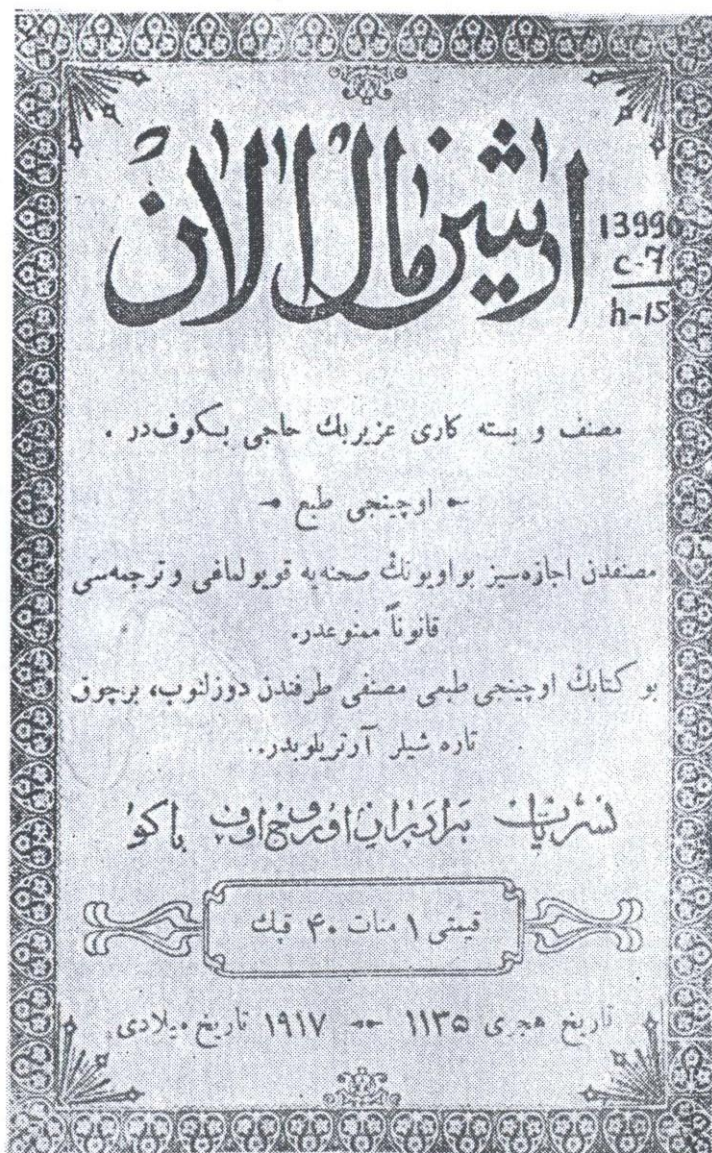 ارشین مال الان
13990
c-7
h-15
مصنف و بسته کاری عزیربك حاجی بكوف‌در .
اوچینجی طبع
مصنفدن اجازه‌سیز بو اویونڭ صحنه‌یه قویولماغی و ترجمه‌سی
قانوناً ممنوعدر.
بو کتابڭ اوچینجی طبعی مصنفی طرفندن دوزلنوب، برچوق
تازه شیلر آرتریلوبدر.
نشریات برادران اوروج اوف باکو
قیمتی ۱ منات ۴۰ قپك
تاریخ هجری ۱۱۳۵ ۱۹۱۷ تاریخ میلادی